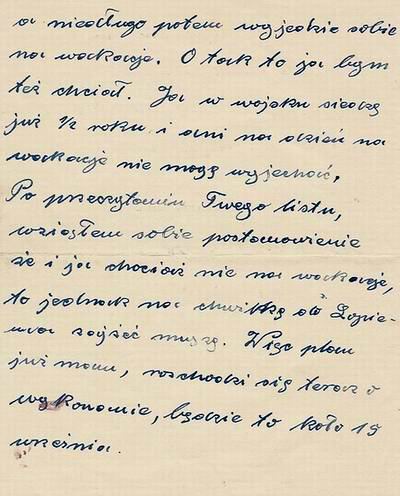 a niedługo potem wyjedzie sobie
na wackacje. O tak to ja bym
też chciał. Ja w wojsku siedzę
już ½ roku i ani na dzień na
wackacje nie mogę wyjechać.
Po przeczytaniu Twego listu,
wziąłem sobie postanowienie
że i ja chociaż nie na wackacje,
to jednak na chwilkę do Łopie-
nna zajść muszę. Więc plan
już mam, rozchodzi się teraz o
wykonanie, będzie to koło 15
września.